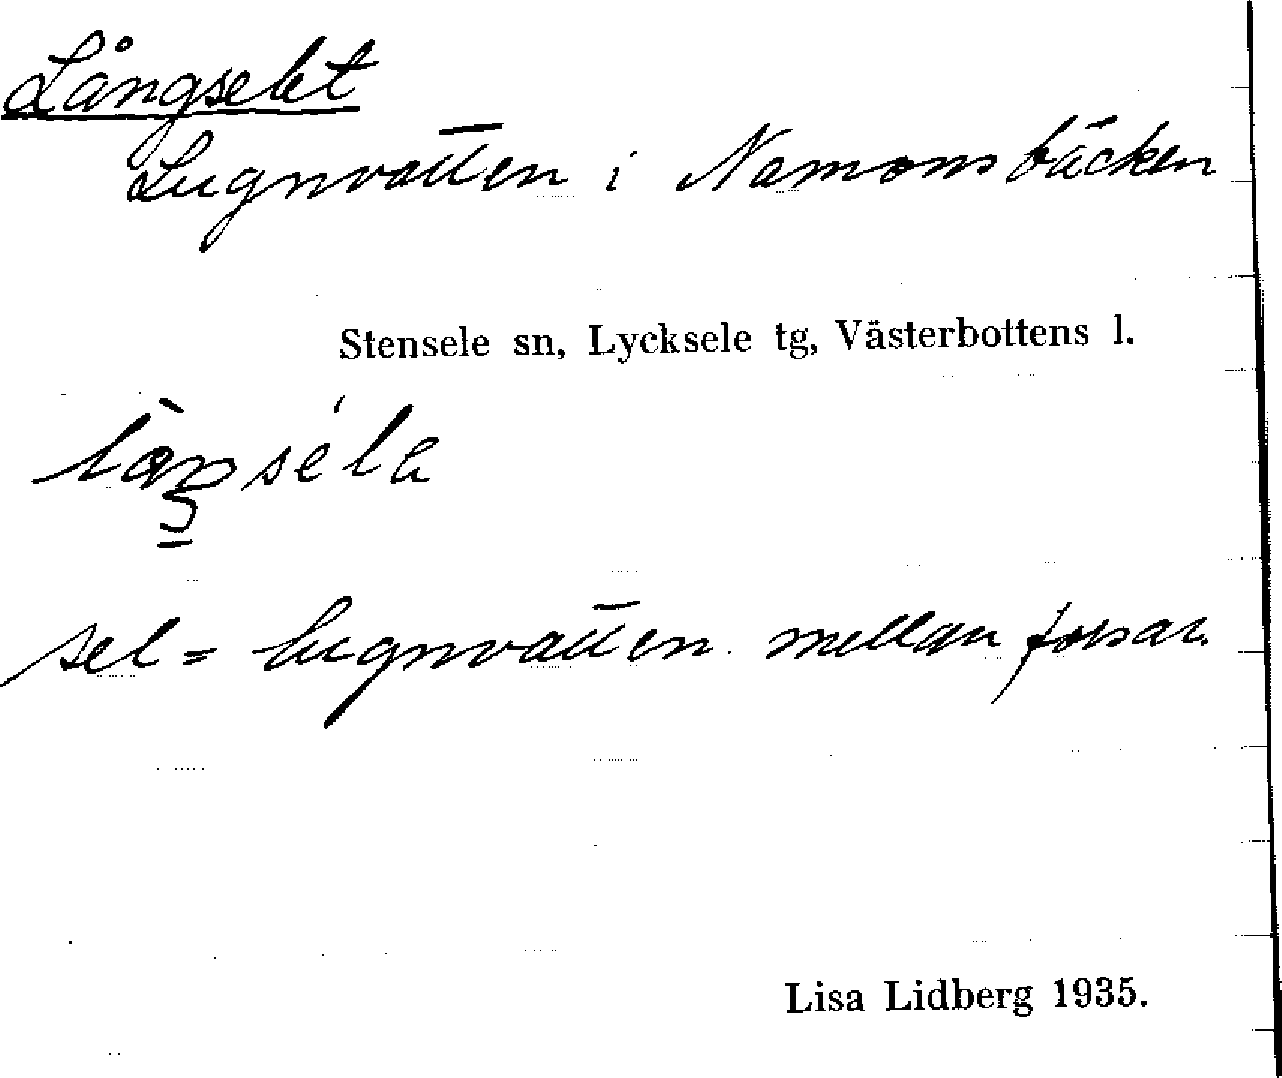 Långselet
Lugnvatten i Namonsbäcken
Stensele sn, Lycksele tg, Västerbottens l.
sel = lugnvatten mellan forsar.
Lisa Lidberg 1935.